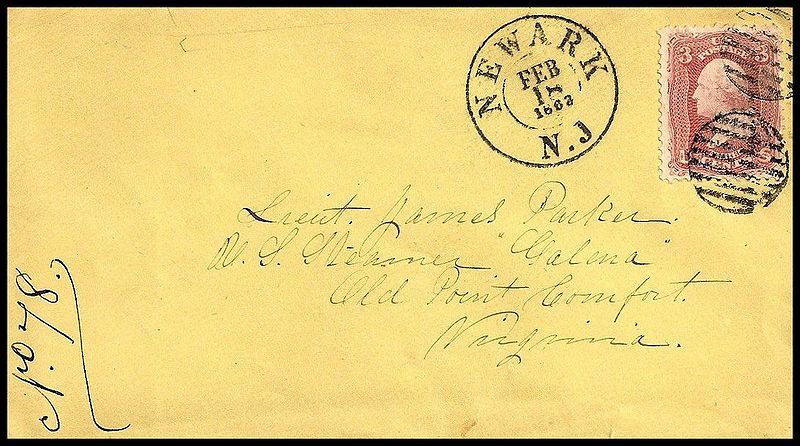 NEWARK
FEB
18
1863
N.J
3 3
Lieut. James Parker.
U. S. Steamer "Galena"
Old Point Comfort.
Virginia.
No. 78.